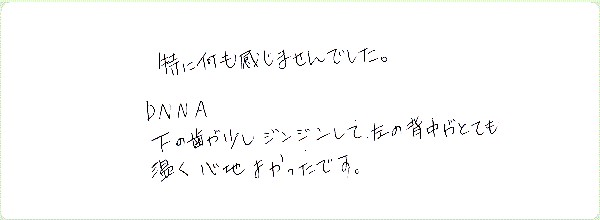 特に何も感じませんでした。
DNNA
下の歯が少しジンジンして、左の背中がとても
温く心地よかったです。